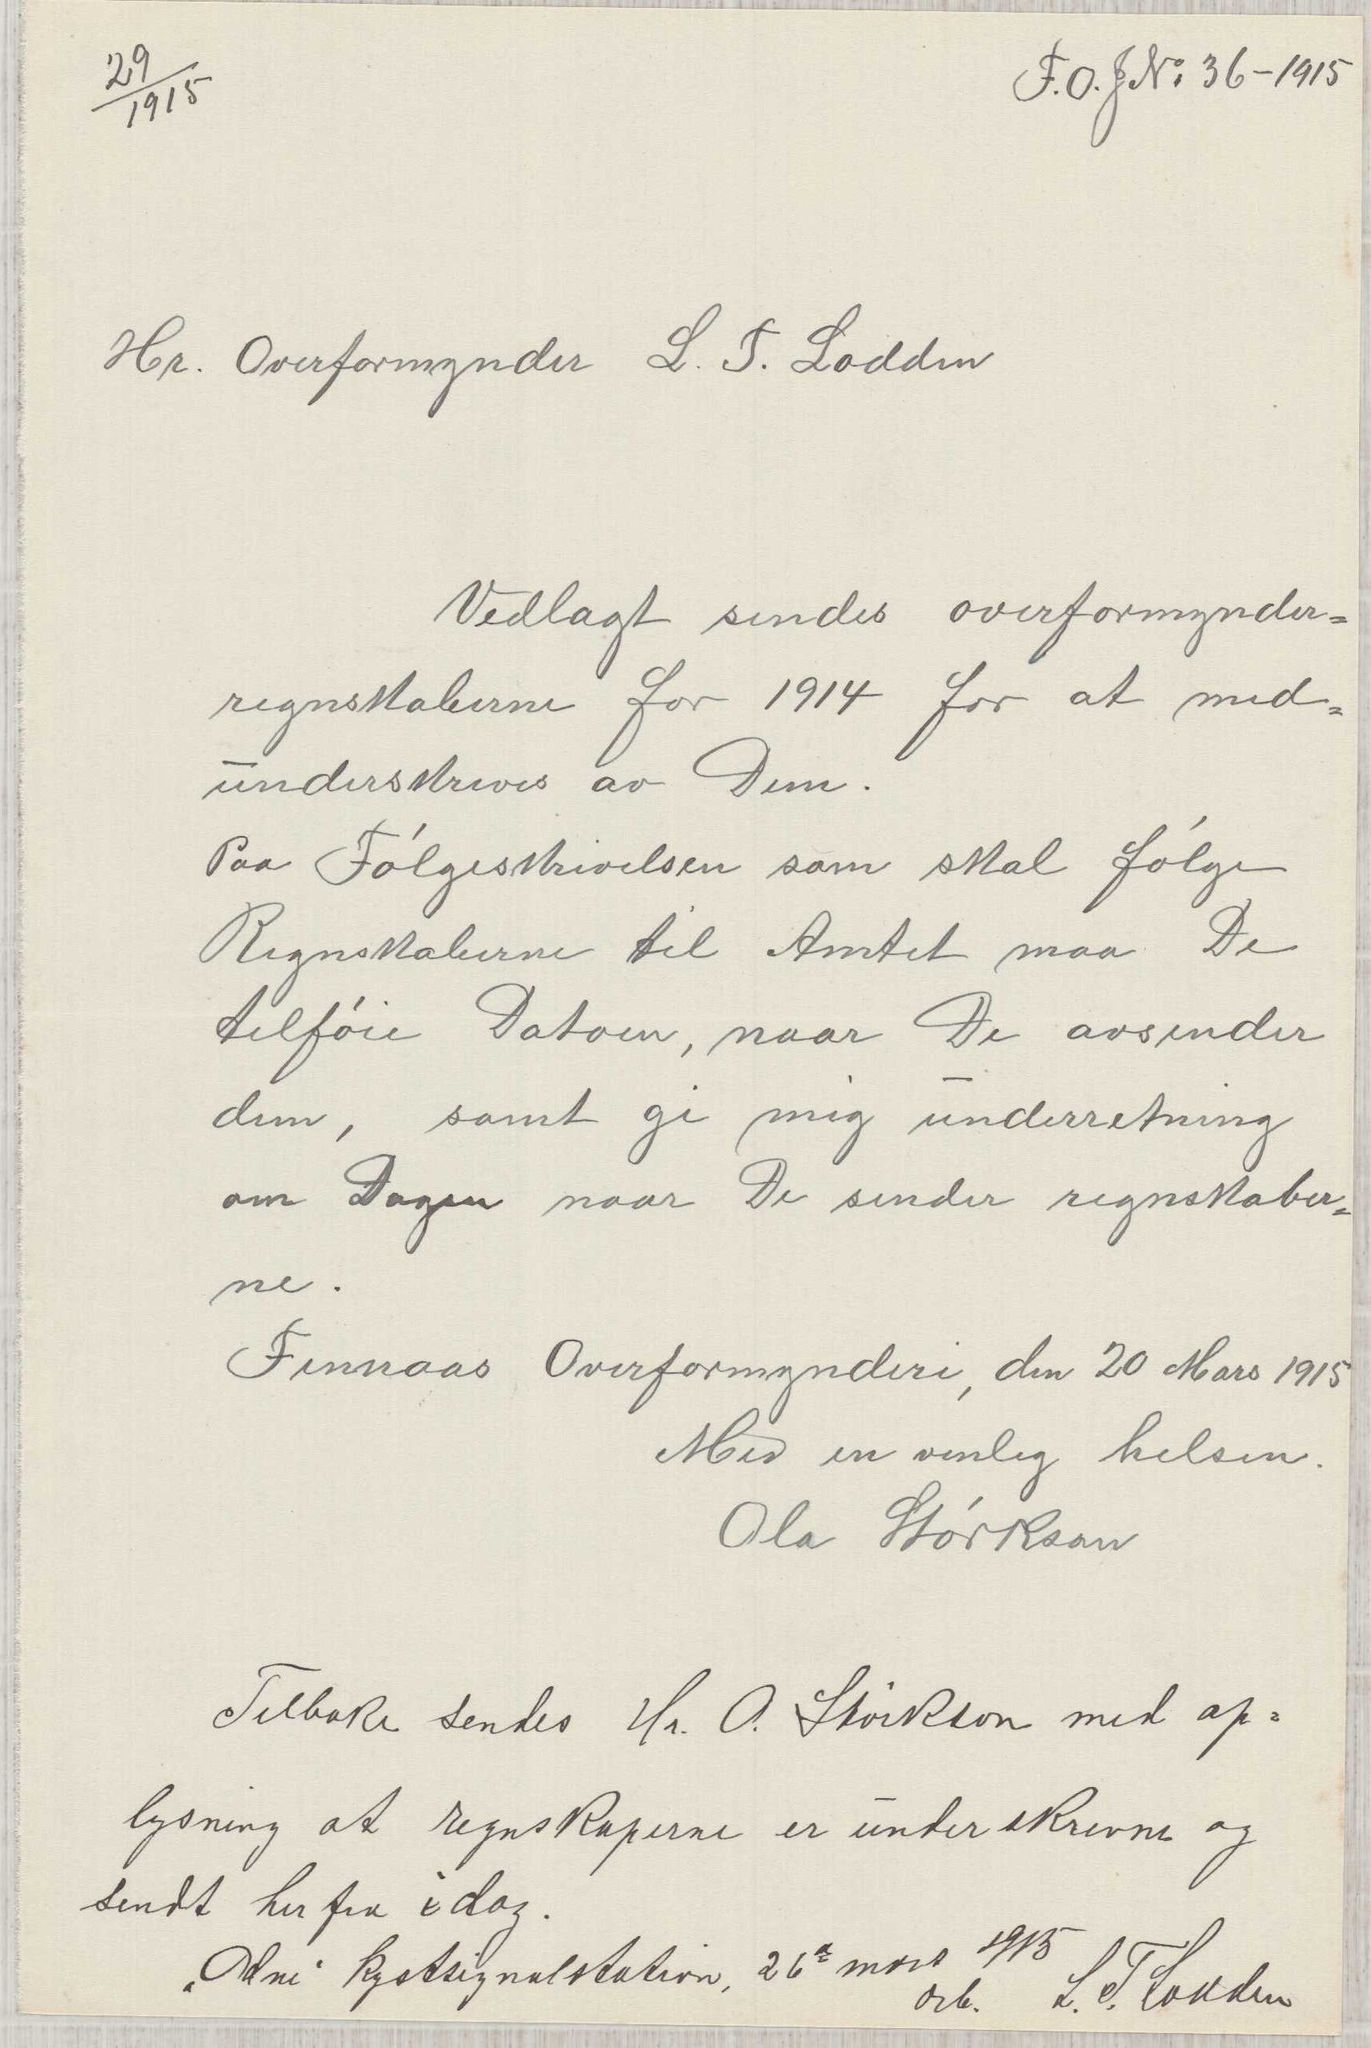 29/1915
F.O.J No: 36-1915
Hr. Overformynder L. T. Lodden
Vedlagt sendes overformynder=
regnskaberne for 1914 for at med=
underskrives av Dem.
Paa Følgeskrivelsen som skal følge
Regnskaberne til Amtet maa De
tilføie Datoen, naar De avsender
dem, samt gi mig underretning
om Dagen naar De sender regnskaber=
ne.
Finnaas Overformynderi, den 20 Mars 1915
Med en venlig helsen.
Ola Størkson
Tilbake sendes Hr. O. Størkson med op=
lysning at regnskaperne er underskrevne og
sendt herfra idag.
"Odni" kystsignalstation, 26 mars 1915
erb. L. T. Lodden